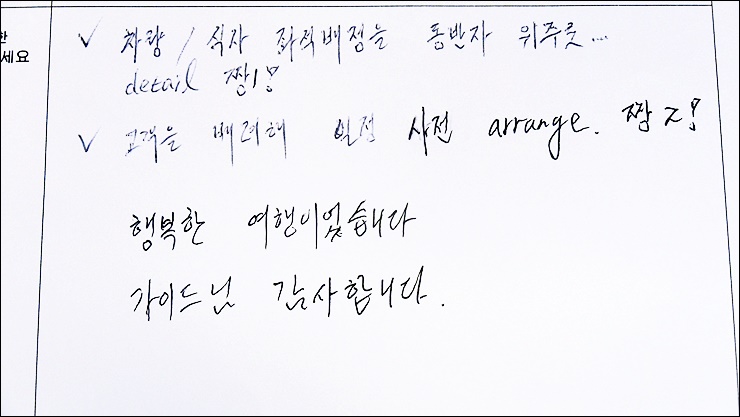 한
세요
✓ 차량 / 식사 좌석배정을 동반자 위주로...
detail 짱1!
✓ 고객을 배려해 일정 사전 arrange. 짱 2!
행복한 여행이었습니다
가이드님 감사합니다.